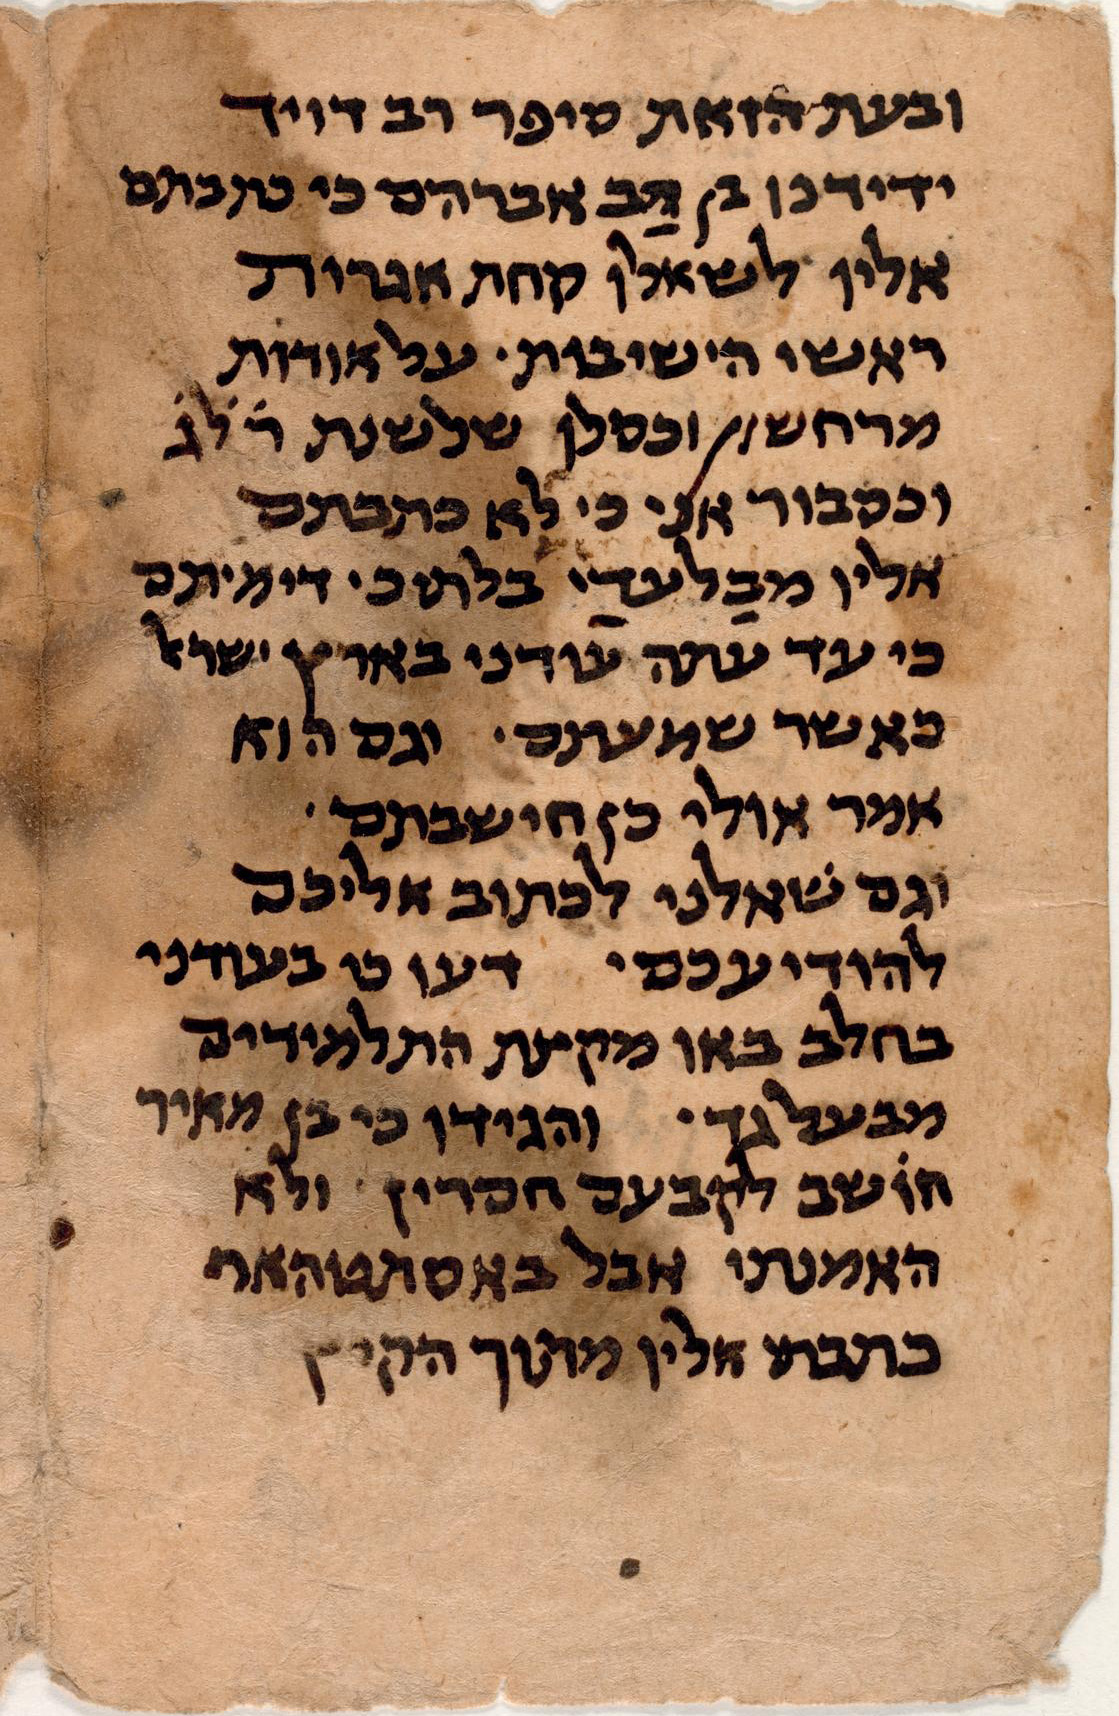 ובעת הזאת סיפר רב דויד
ידידנו בן רב אברהם כי כתבתם
אלין לשאלן קחת אגרות
ראשי הישיבות · על אודות
מרחשון וכסלו שלשנת רלג
וכסבור אני כי לא כתבתם
אלין מבלעדי בלתי כי דימיתם
כי עד עתה עודני בארץ ישראל
כאשר שמעתם · וגם הוא
אמר אולי כן חישבתם ·
וגם שאלני לכתוב אליכם
להודיעכם · דעו כי בעודני
בחלב באו מקצת התלמידים
מבעל גד · והגידו כי בן מאיר
חושב לקבעם חסרין · ולא
האמנתי אבל באסתטהאר
כתבתי אלין מתוך הקיץ